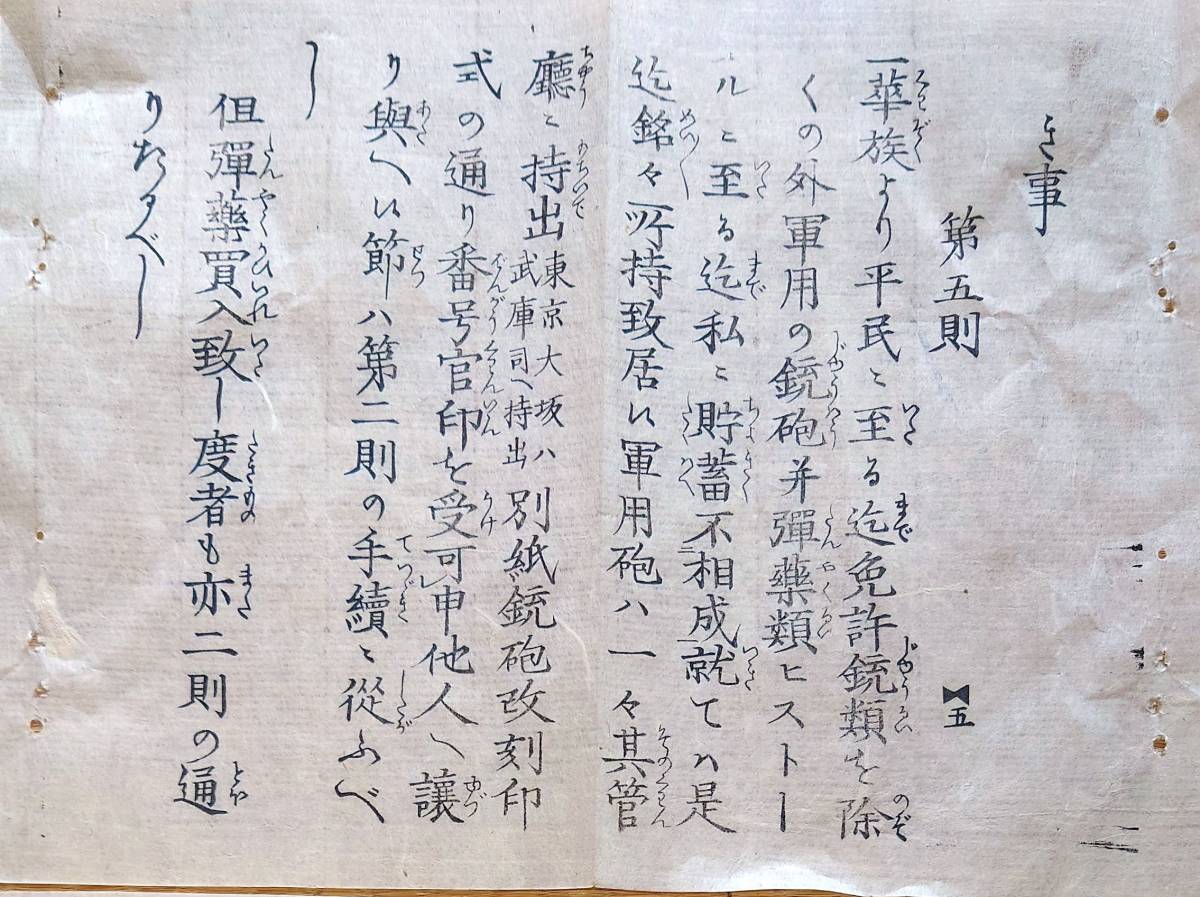 き事
第五則
一華族より平民ニ至る迄免許銃類を除
くの外軍用の銃砲并彈藥類ヒストー
ルニ至る迄私ニ貯蓄不相成就てハ是
迄銘々所持致居候軍用砲ハ一々其管
廳ニ持出東京大坂ハ武庫司へ持出別紙銃砲改刻印
式の通り番号官印を受可申他人へ讓
り與へ候節ハ第二則の手續ニ從ふべ
し
但彈藥買入致し度者も亦二則の通
りたるべし
五